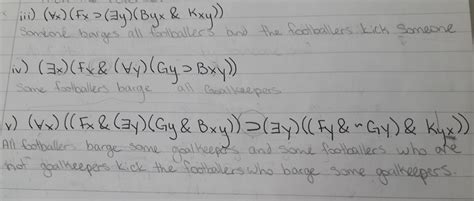 iii) (∀x)(Fx ⊃ (∃y)(Byx & Kxy))
Someone barges all footballers and the footballers kick someone
iv) (∃x)(Fx & (∀y)(Gy ⊃ Bxy))
Some footballers barge all Goalkeepers
v) (∀x)((Fx & (∃y)(Gy & Bxy)) ⊃ (∃y)((Fy & ~Gy) & Kyx))
All footballers barge some goalkeepers and some footballers who are
not goalkeepers kick the footballers who barge some goalkeepers.